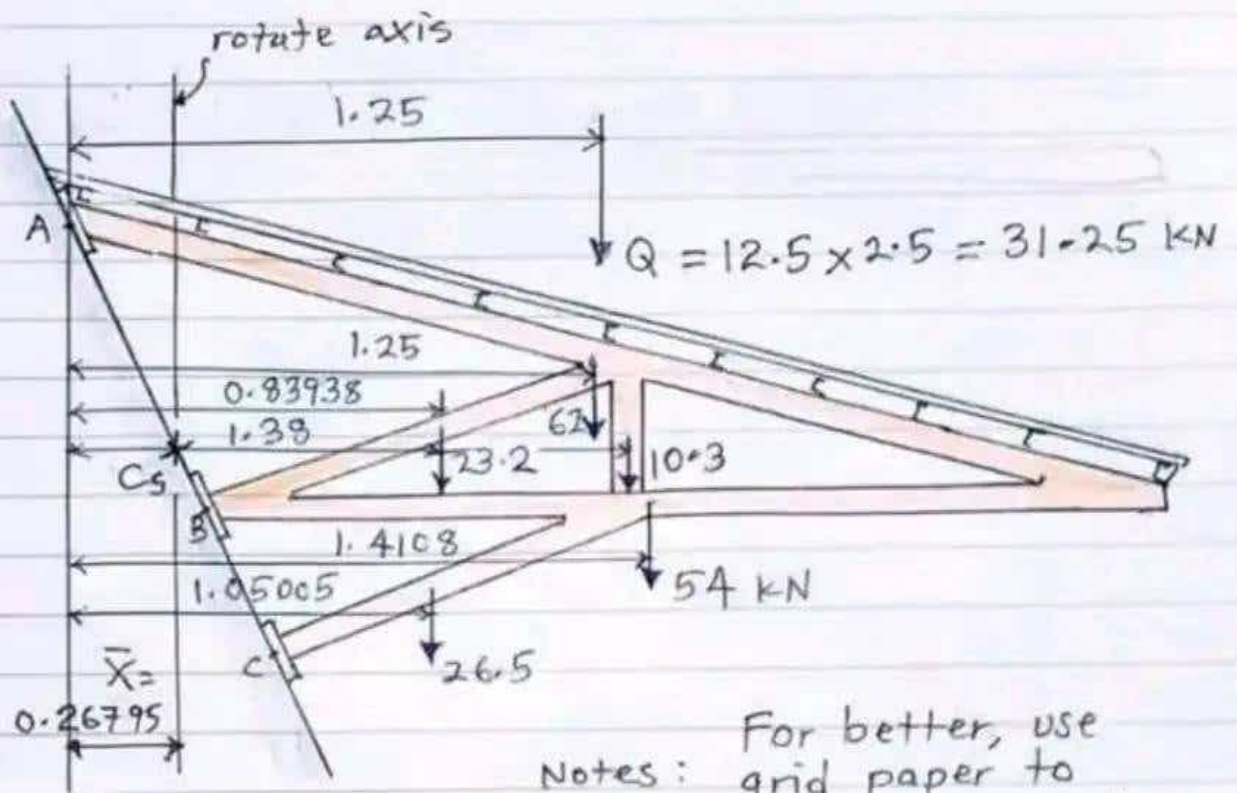 rotate axis
1.25
A
Q = 12.5 x 2.5 = 31.25 KN
1.25
0.83938
1.38
62
23.2
10.3
Cs
B
1.4108
54 KN
1.05005
C
26.5
X̄=
0.26795
For better, use
Notes: grid paper to